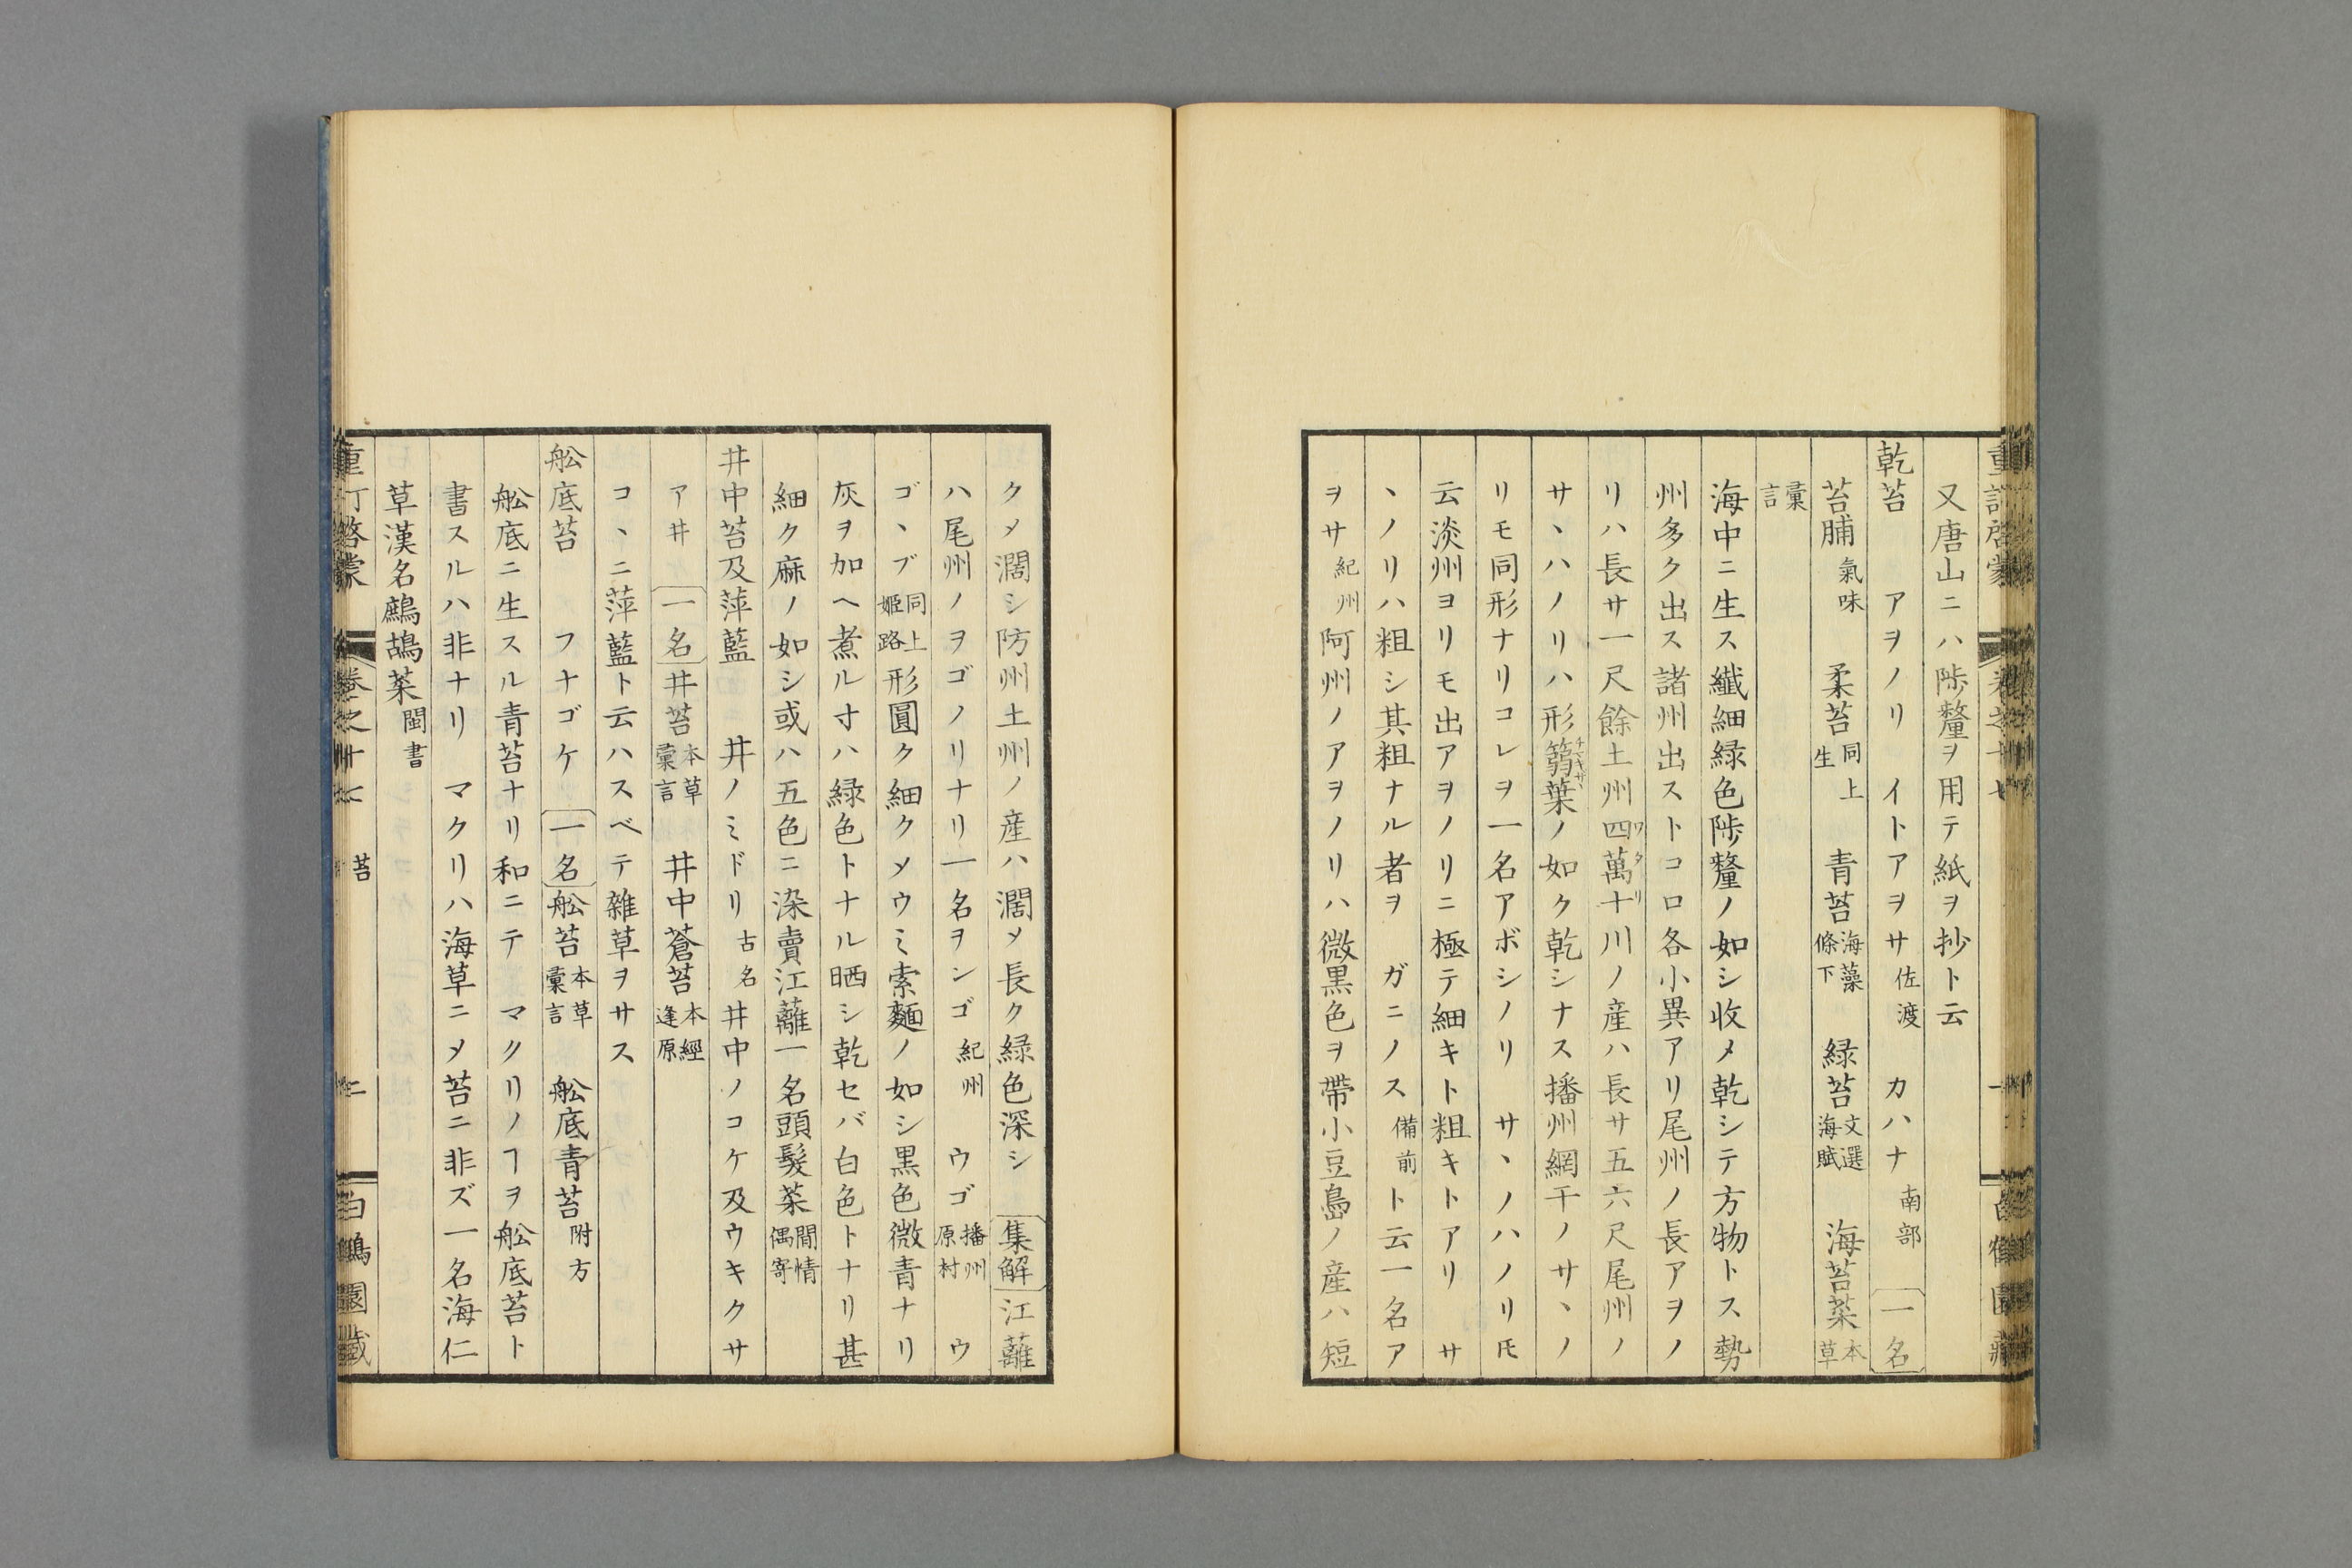 又唐山ニハ陟釐ヲ用テ紙ヲ抄ト云
乾苔 アヲノリ イトアヲサ佐渡 カハナ南部 一名
苔脯氣味 柔苔同上生 青苔海藻條下 緑苔文選海賦 海苔菜本草
彙言
海中ニ生ス纖細緑色陟釐ノ如シ收メ乾シテ方物トス勢
州多ク出ス諸州出ストコロ各小異アリ尾州ノ長アヲノ
リハ長サ一尺餘土州四萬十川ノ産ハ長サ五六尺尾州ノ
サヽハノリハ形篛葉ノ如ク乾シナス播州網干ノサヽノ
リモ同形ナリコレヲ一名アボシノリ サヽノハノリ𪜈
云淡州ヨリモ出アヲノリニ極テ細キト粗キトアリ サ
ヽノリハ粗シ其粗ナル者ヲ ガニノス備前ト云一名ア
ヲサ紀州阿州ノアヲノリハ微黒色ヲ帶小豆島ノ産ハ短
クメ濶シ防州土州ノ産ハ濶メ長ク緑色深シ 集解江蘺
ハ尾州ノヲゴノリナリ一名ヲンゴ紀州 ウゴ播州原村 ウ
ゴヽブ同上姫路形圓ク細クメウミ索麵ノ如シ黒色微青ナリ
灰ヲ加ヘ煮ル寸ハ緑色トナル晒シ乾セバ白色トナリ甚
細ク麻ノ如シ或ハ五色ニ染賣江蘺一名頭髮菜閒情偶寄
井中苔及萍藍 井ノミドリ古名井中ノコケ及ウキクサ
アヰ 一名井苔本草彙言 井中蒼苔本經逢原
コヽニ萍藍ト云ハスベテ雜草ヲサス
舩底苔 フナゴケ 一名舩苔本草彙言 舩底青苔附方
舩底ニ生スル青苔ナリ和ニテ マクリノヿヲ舩底苔ト
書スルハ非ナリ マクリハ海草ニメ苔ニ非ズ一名海仁
草漢名鷓鴣菜閩書
苔